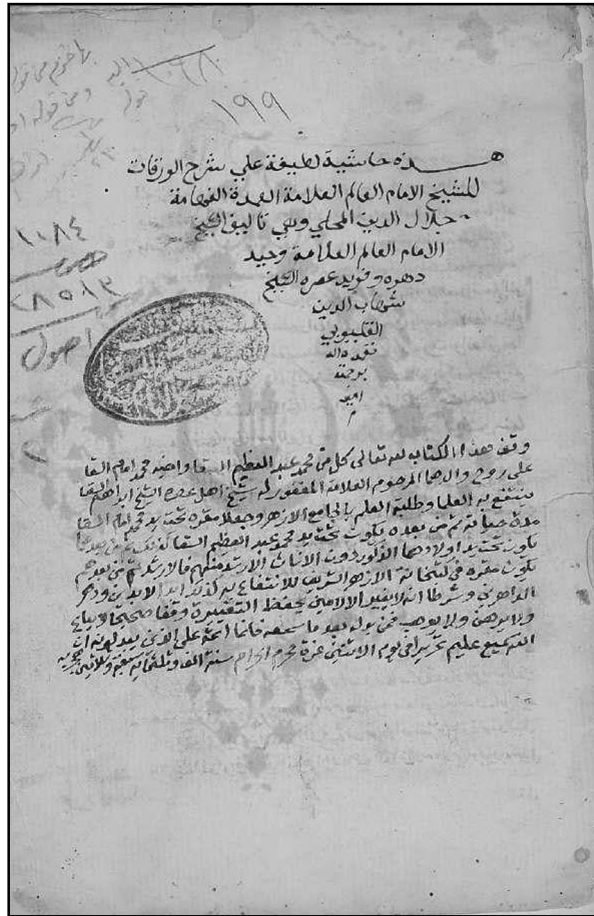 ١٩٩
هذه حاشية لطيفة علي شرح الورقات
للشيخ الامام العالم العلامة العمدة الفهامة
جلال الدين المحلي وهي تاليف الشيخ
الامام العالم العلامة وحيد
دهره وفريد عصره الشيخ
شهاب الدين
القليوبي
تغمده الله
برحمته
امين
م
١٠٨٤
٢٨٥١٣
اصول
وقف هذا الكتاب لله تعالى كل من محمد عبد العظيم السقا واخيه محمد امام السقا
على روح والدهما المرحوم العلامة المغفور له شيخ اهل عصره الشيخ ابراهيم السقا
ينتفع به العلما وطلبة العلم بالجامع الازهر وجعلا مقره تحت يد محمد امام السقا
مدة حياته ثم من بعده يكون تحت يد محمد عبد العظيم السقا كذلك ثم من بعدهما
يكون تحت يد اولادهما الذكور دون الاناث الارشد منهم فالارشد ثم من بعدهم
يكون مقره في كتبخانة الازهر الشريف للانتفاع به كذلك ابد الابدين ودهر
الداهرين وشرطا انه لا يغير الا لامين يحفظه وقفا صحيحا لا يباع
ولا يرهن ولا يوهب فمن بدله بعد ما سمعه فانما اثمه على الذين يبدلونه ان
الله سميع عليم تحريرا في يوم الاثنين غرة محرم الحرام سنة الف وثلثمائة وثلاثين هجريه